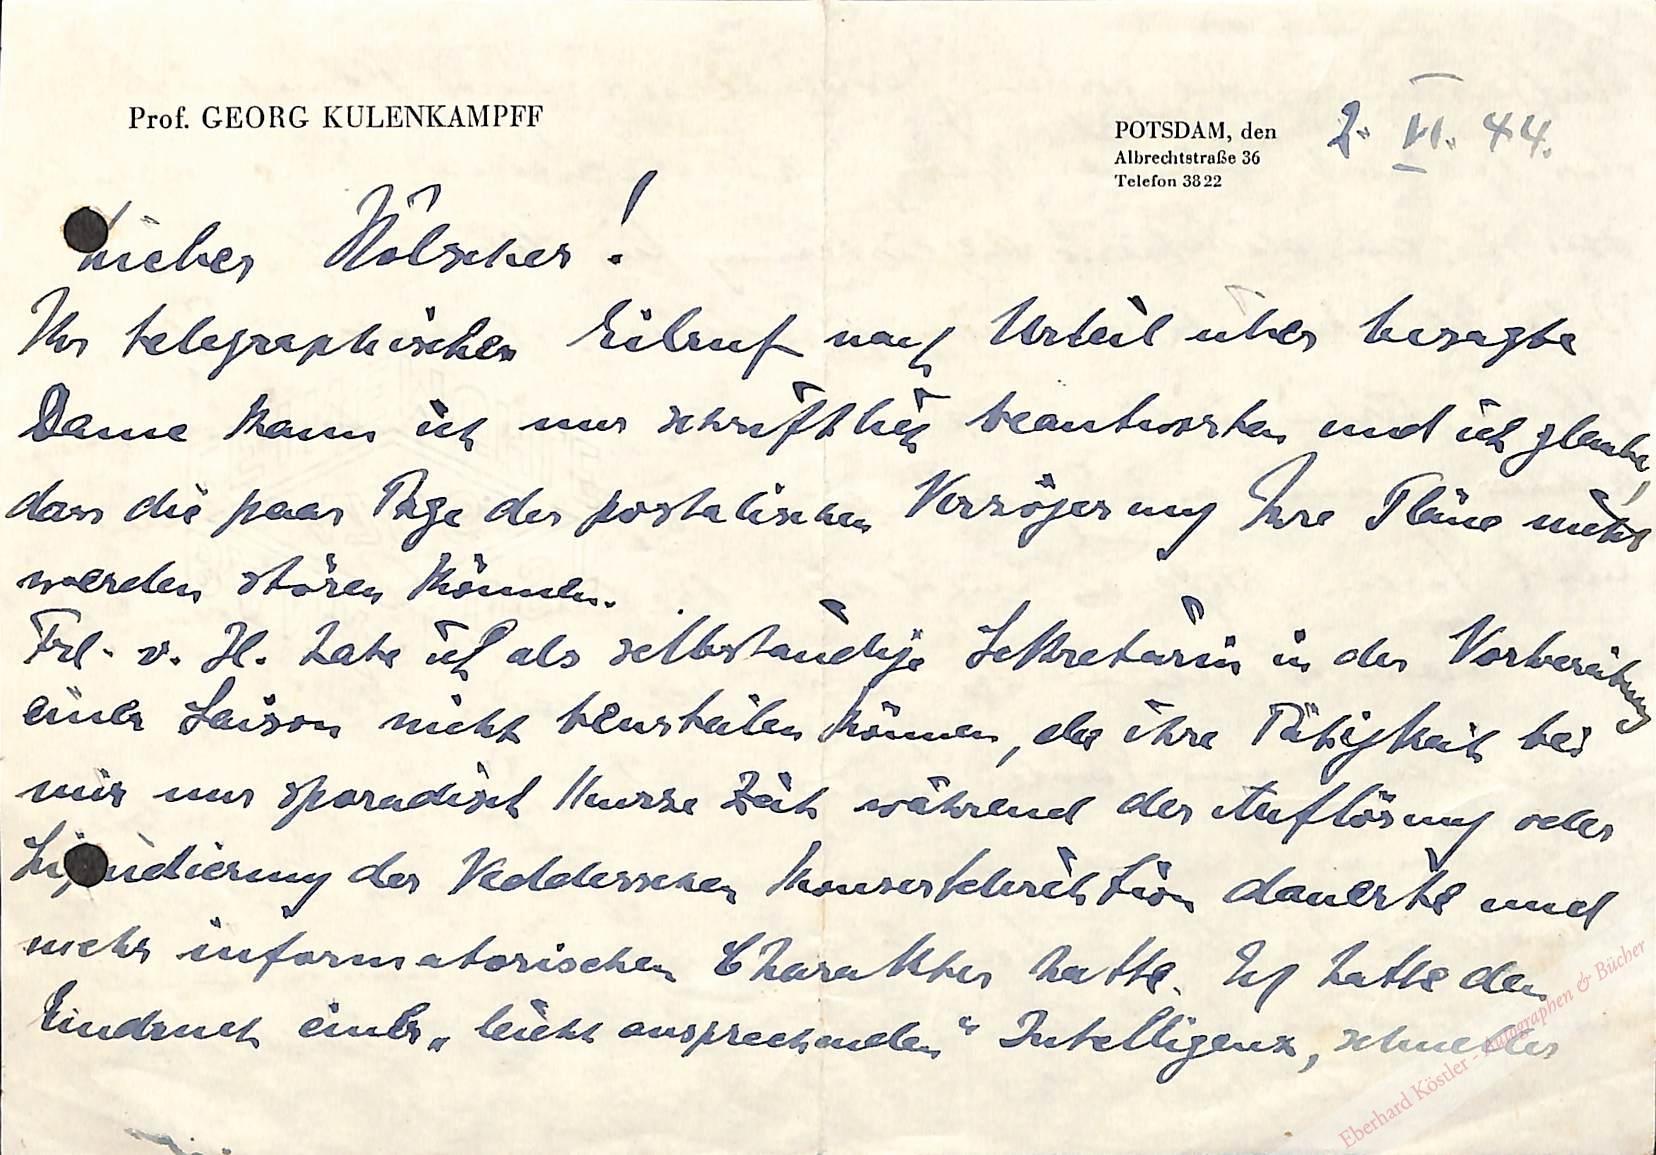 Prof. GEORG KULENKAMPFF
POTSDAM, den 2. VI. 44.
Albrechtstraße 36
Telefon 3822
Lieber Hölscher!
Ihr telegraphischen Eilruf nach Urteil über besagte
Dame kann ich nur schriftlich beantworten und ich glaube,
dass die paar Tage der postalischen Verzögerung Ihre Pläne nicht
werden stören können.
Frl. v. H. habe ich als selbständige Sekretärin in der Vorbereitung
einer Saison nicht beurteilen können, da ihre Tätigkeit bei
mir nur sporadisch kurze Zeit während der Auflösung oder
Liquidierung der Vedderschen Konzertdirektion dauerte und
mehr informatorischen Charakter hatte. Ich hatte den
Eindruck einer „leicht ansprechenden“ Intelligenz, schneller
Eberhard Köstler - Autographen & Bücher